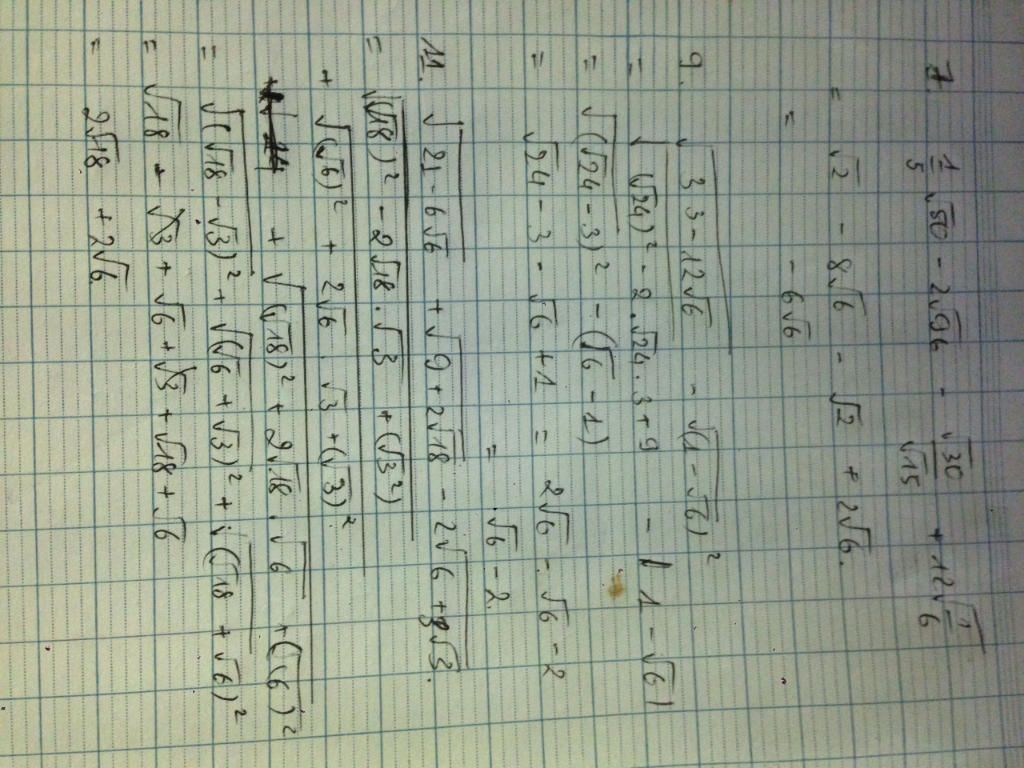 7. 1/5 √50 - 2√96 - √30/√15 + 12√(1/6)
= √2 - 8√6 - √2 + 2√6.
= - 6√6
9. √(33 - 12√6) - √((1 - √6)²)
= √((√24)² - 2.√24.3 + 9) - |1 - √6|
= √((√24 - 3)²) - (√6 - 1)
= √24 - 3 - √6 + 1 = 2√6 - √6 - 2
= √6 - 2.
11. √(21 - 6√6) + √(9 + 2√18) - 2√(6 + 3√3).
= √((√18)² - 2√18.√3 + (√3²))
+ √((√6)² + 2√6.√3 + (√3)²)
+ √((√18)² + 2√18.√6 + (√6)²)
= √((√18 - √3)²) + √((√6 + √3)²) + √((√18 + √6)²)
= √18 - √3 + √6 + √3 + √18 + √6
= 2√18 + 2√6.